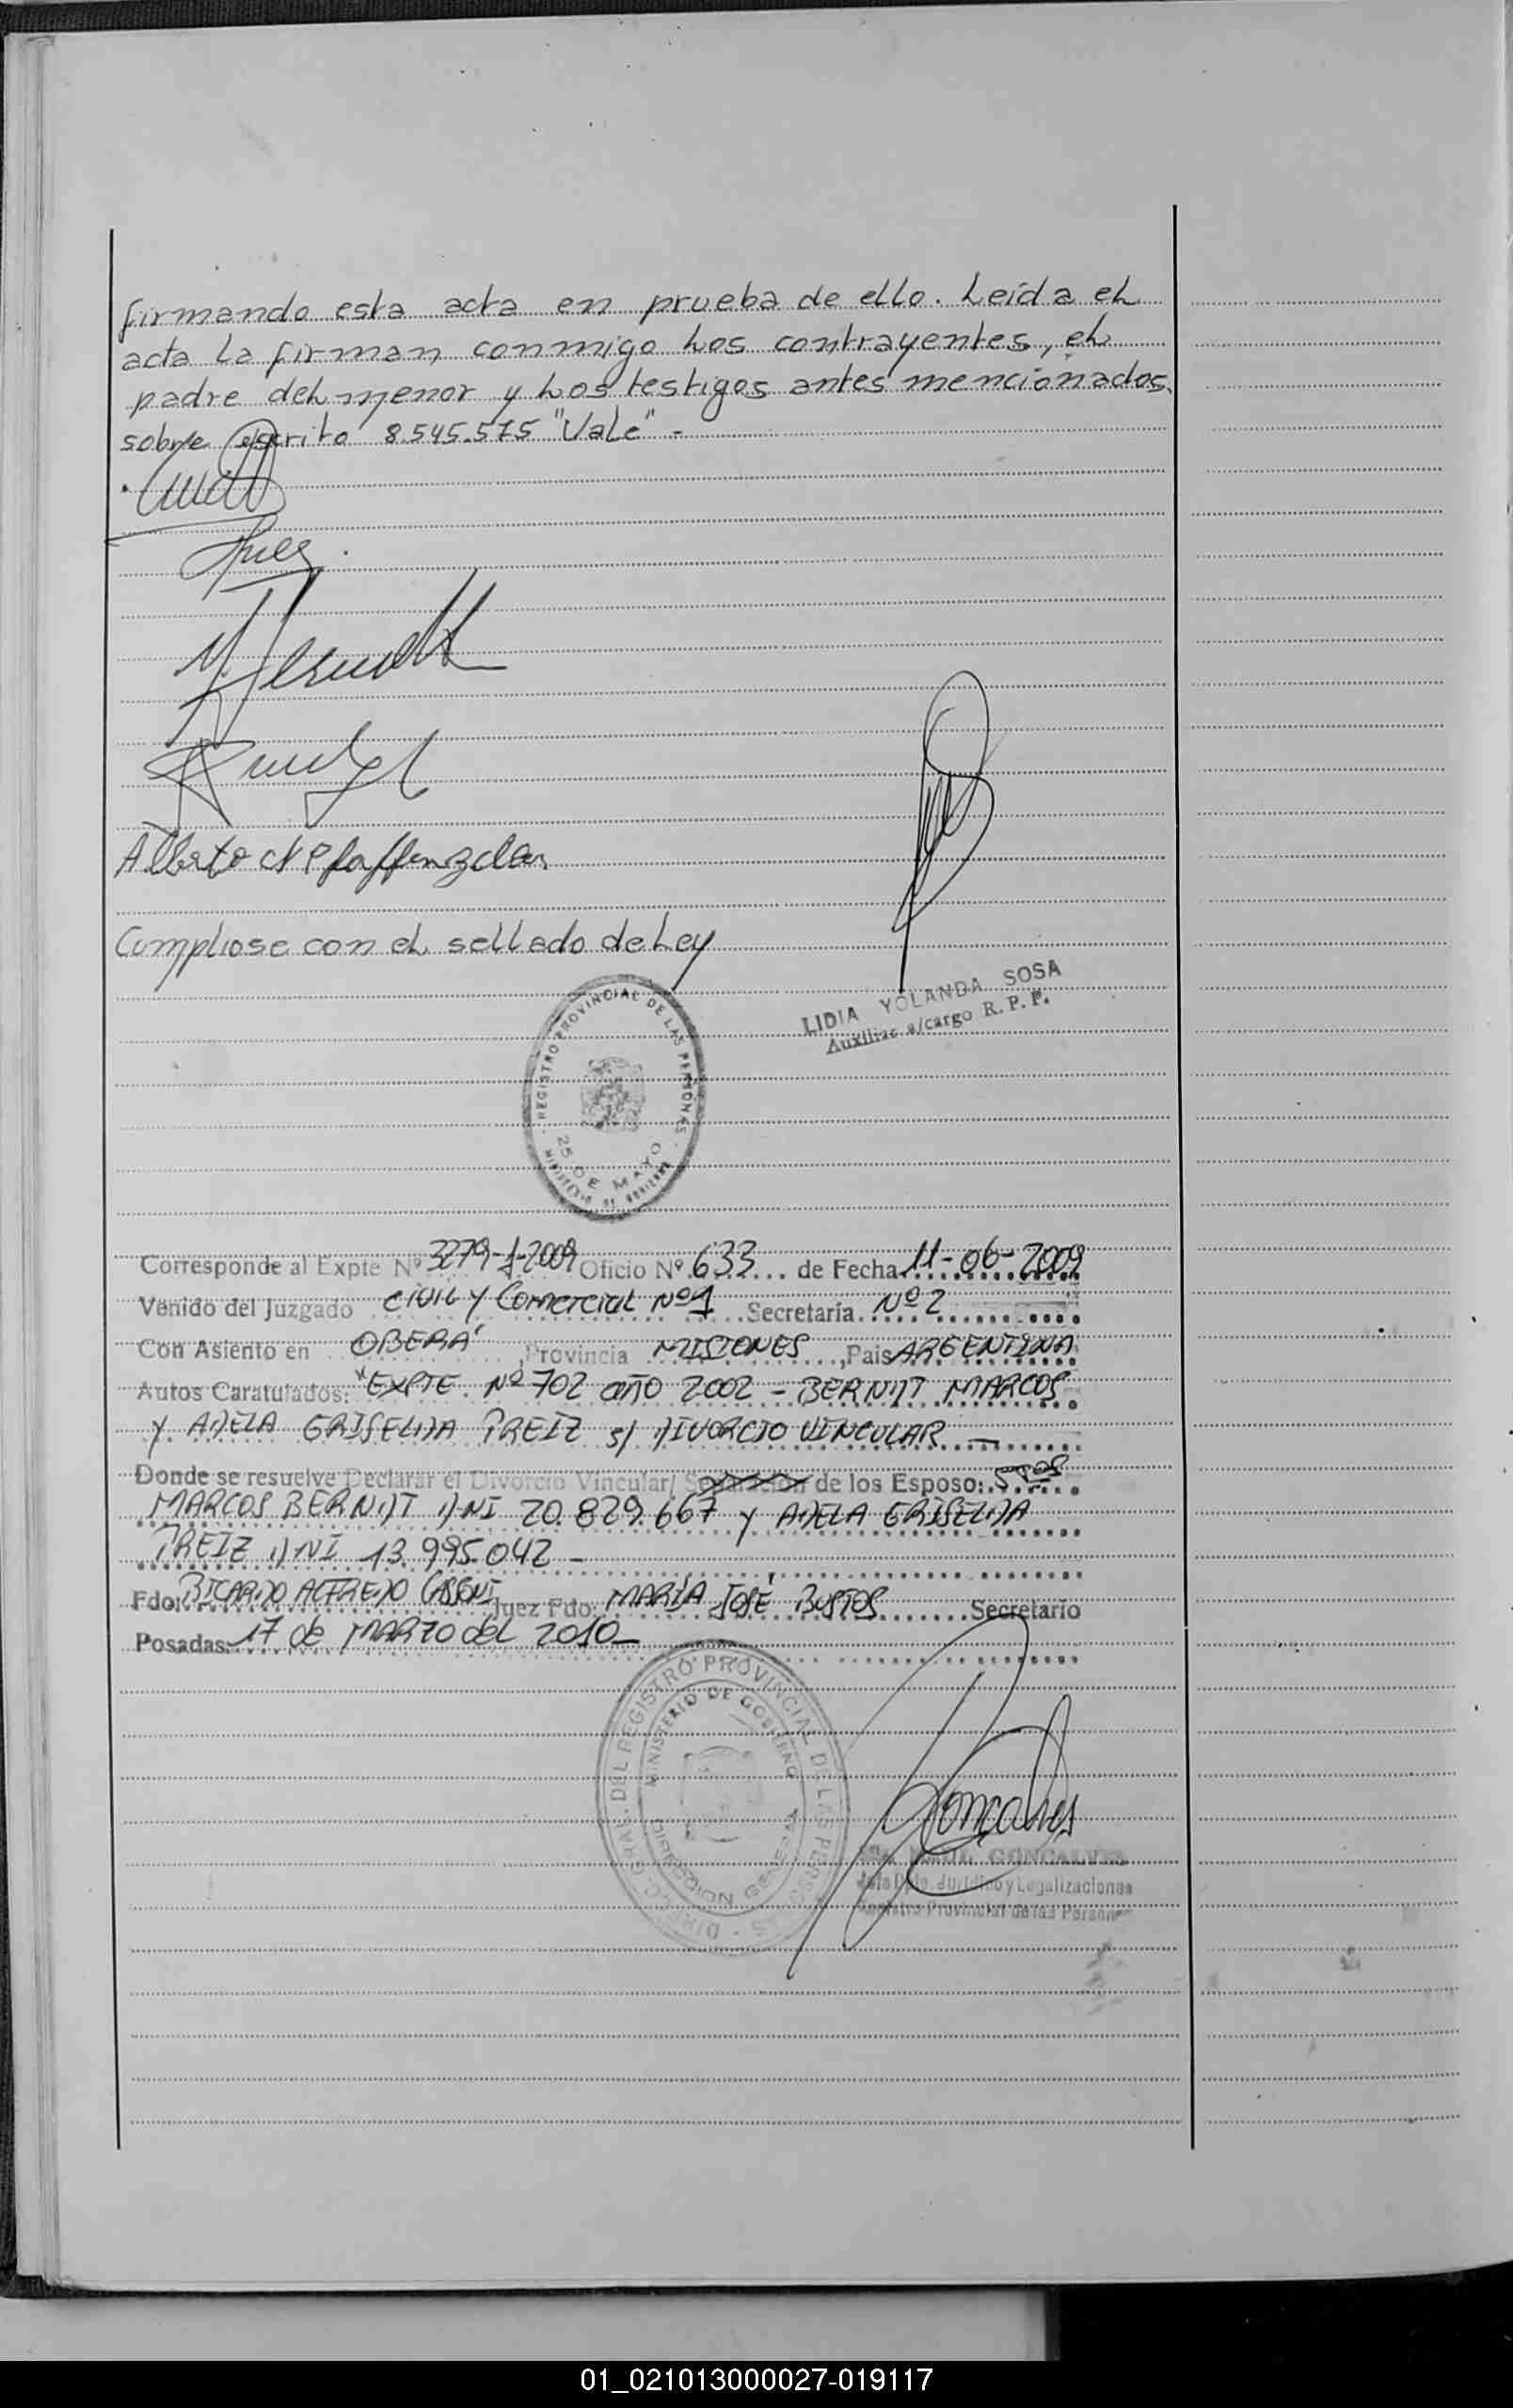 firmando esta acta en prueba de ello. Leída el
acta la firman conmigo los contrayentes, el
padre del menor y los testigos antes mencionados.
sobre escrito 8.545.575 "Vale" -
Alberto N Pfaffenzeller
Cumpliose con el sellado de Ley
LIDIA YOLANDA SOSA
Auxiliar a/cargo R. P. P.
REGISTRO PROVINCIAL DE LAS PERSONAS
25 DE MAYO
MINISTERIO DE GOBIERNO
Corresponde al Expte Nº 3279-J-2009 Oficio Nº 633 de Fecha 11-06-2009
Venido del Juzgado CIVIL Y COMERCIAL Nº 1 Secretaría Nº 2
Con Asiento en OBERÁ, Provincia MISIONES, Pais ARGENTINA
Autos Caratulados: "EXPTE. Nº 702 año 2002 - BERNDT MARCOS
Y ADELA GRISELDA PREIZ s/ DIVORCIO VINCULAR -
Donde se resuelve Declarar el Divorcio Vincular/ Separación de los Esposo: Spos
MARCOS BERNDT DNI 20.829.667 y ADELA GRISELDA
PREIZ DNI 13.995.042 -
Fdo: RICARDO ALFREDO CASSONI Juez Fdo: MARÍA JOSÉ BUSTOS Secretario
Posadas: 17 de MARZO del 2010 -
DIRECC. GRAL. DEL REGISTRO PROVINCIAL DE LAS PERSONAS
MINISTERIO DE GOBIERNO
DIRECCION GENERAL
Goncalves
RAUL GONCALVES
Jefe Dpto. Jurídico y Legalizaciones
Registro Provincial de las Personas
01_021013000027-019117